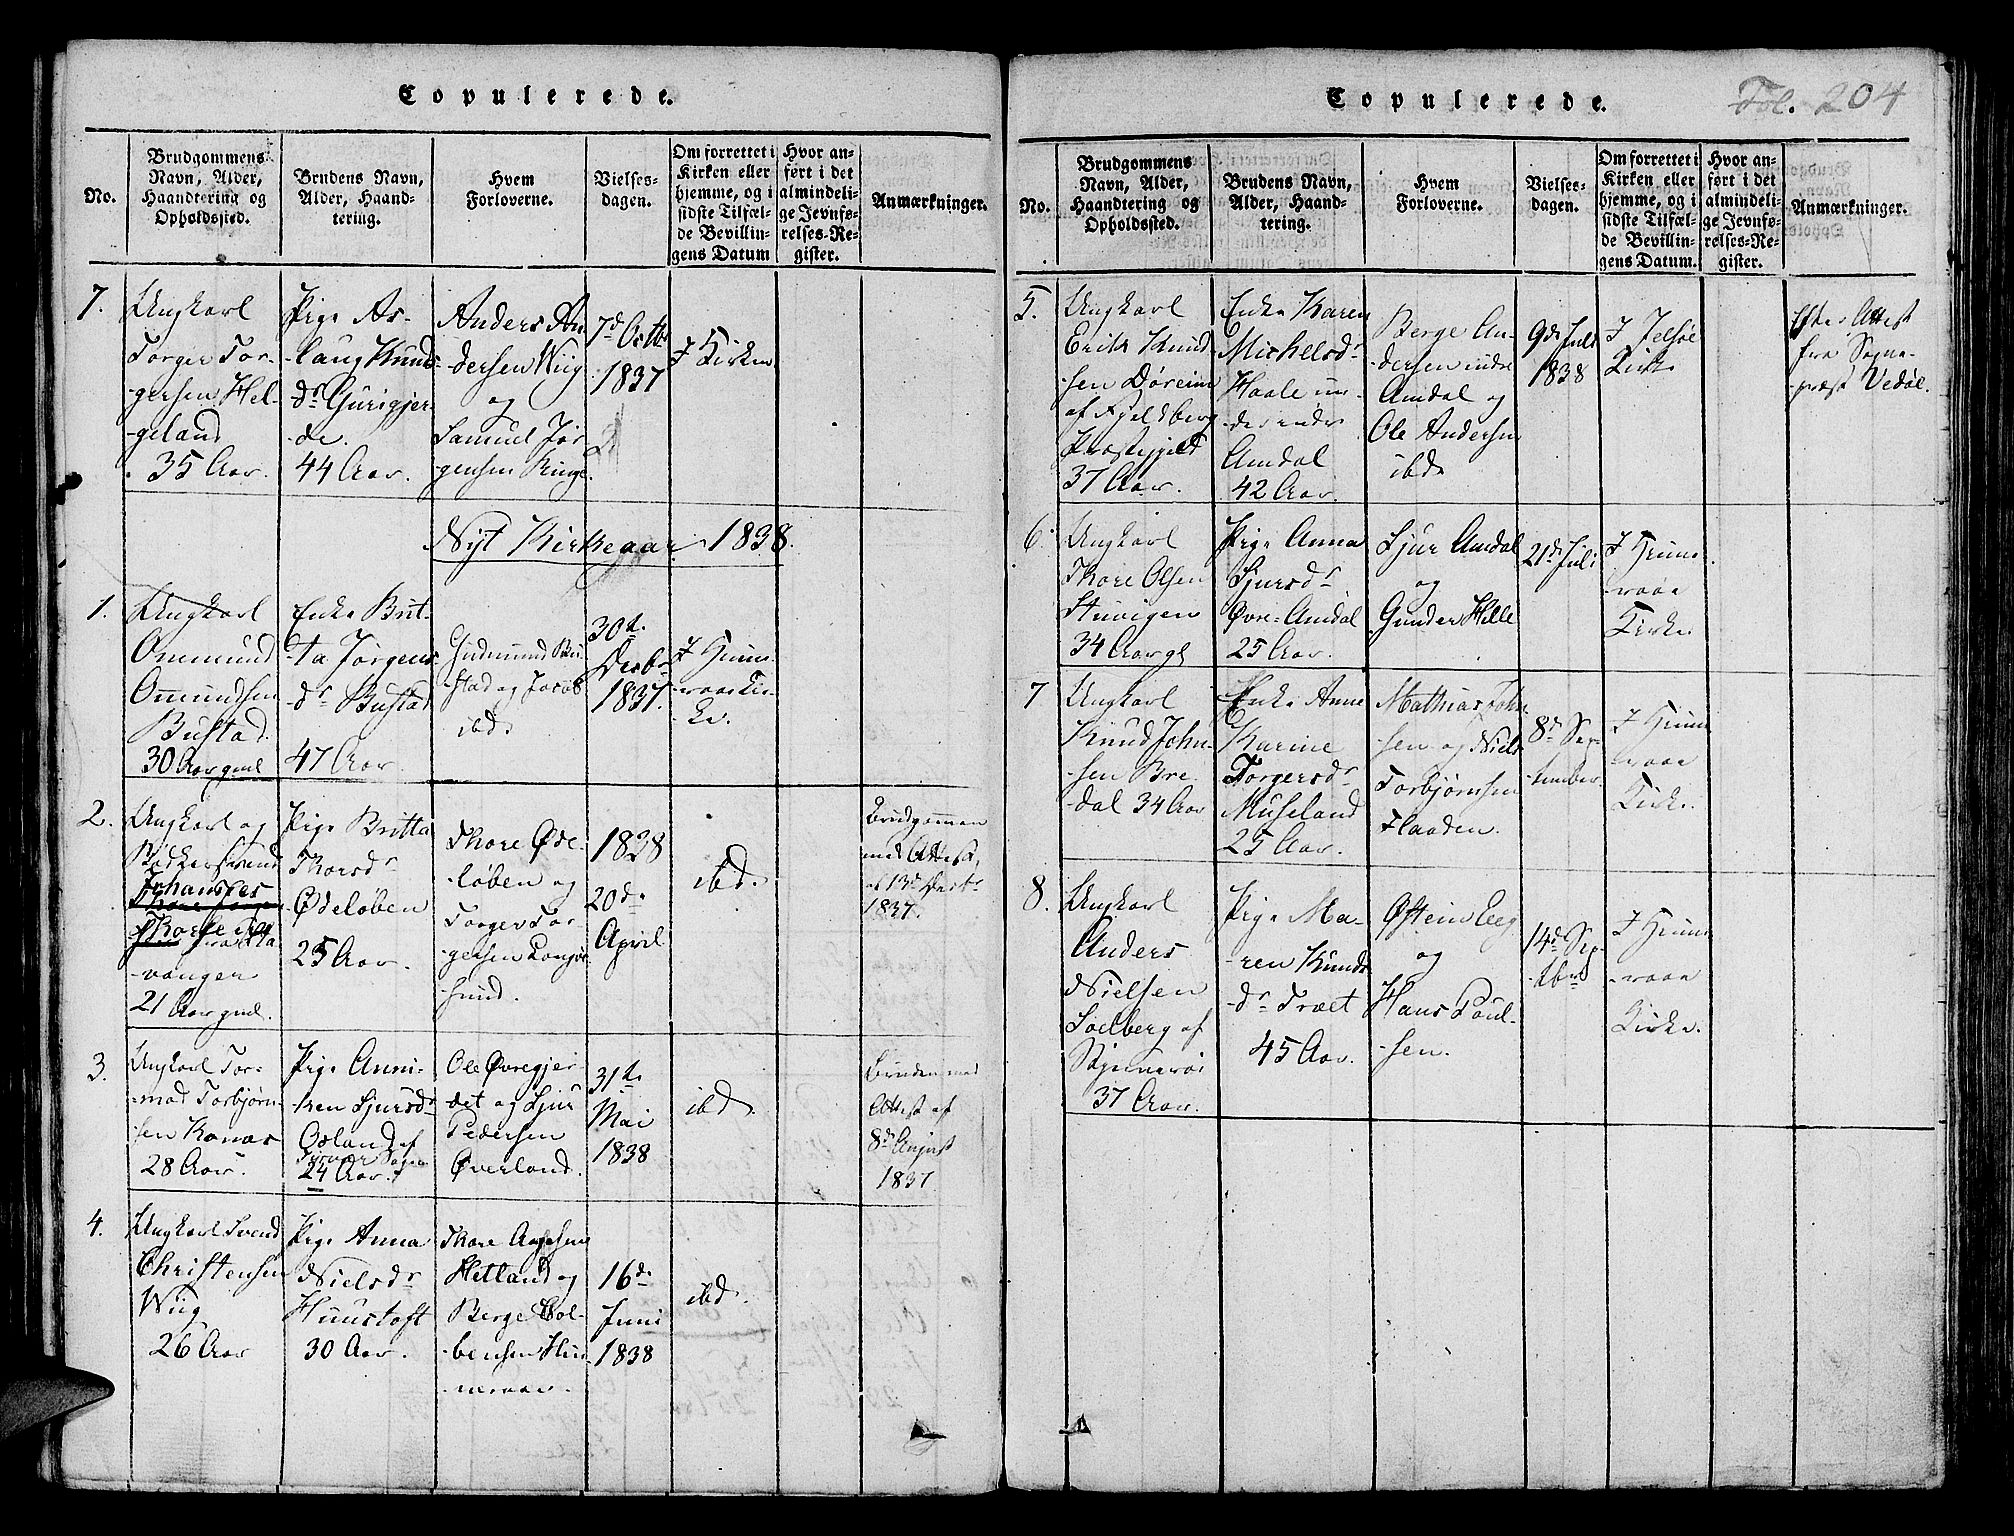 Copulerede.
No.
Brudgommens
Navn, Alder,
Haandtering og
Opholdssted.
Brudens Navn,
Alder, Haand-
tering.
Hvem
Forloverne.
Vielses-
dagen.
Om forrettet i
Kirken eller
hjemme, og i
sidste Tilfæl-
de Bevillin-
gens Datum
Hvor an-
ført i det
almindeli-
ge Jevnfø-
relses-Re-
gister.
Anmærkninger.
7.
Ungkarl
Torger Tor-
gersen Hel-
-geland
35 Aar.
Pige As-
-laug Knuds-
-dr Gurigjer-
-de.
44 Aar.
Anders An
-dersen Wiig
og
Samuel Jør
-gensen Ringe
7d Octbr
1837
I Kirken
Nyt Kirkeaar 1838.
1.
Ungkarl
Ommund
Omundsen
Bustad
30 Aar gml
Enke Brit-
-ta Jørgens
-dr Bustad
47 Aar
Gudmund Bu-
stad og Jacob
ibd.
30te
Desbr
1837.
I Hinne-
-raae Kir-
-ke.
2.
Ungkarl og
Bødkersvend
Johannes
fra Sta
-vanger
21 Aar gml.
Pige Britta
Thorsdr
Ødeløben
25 Aar.
Thore Øde-
-løben og
Torger Tor
-gersen
-sund.
1838
20de
April
ibd.
Brudgommen
med Attest
af 13d
1837.
3.
Ungkarl Tor-
-mod Torbjørn-
-sen Konas
28 Aar
Pige Anni-
-ken Sjursdr
Osland af
Tysvær Sogn
24 Aar.
Ole Øvregjer
det og Sjur
Pedersen
Øverland.
31te
Mai
1838
ibd.
Bruden med
Attest af
8d August
1837
4.
Ungkarl Svend
Christensen
Wiig
26 Aar
Pige Anna
Nielsdr
Huustoft
30 Aar.
Thore Aagesen
Hetland og
Berge Col-
-bensen Hin-
-neraae.
16de
Juni
1838
ibd.
Copulerede.
Fol. 204
No.
Brudgommens
Navn, Alder,
Haandtering og
Opholdssted.
Brudens Navn,
Alder, Haand-
tering.
Hvem
Forloverne.
Vielses-
dagen.
Om forrettet i
Kirken eller
hjemme, og i
sidste Tilfæl-
de Bevillin-
gens Datum.
Hvor an-
ført i det
almindeli-
ge Jevnfø-
relses-Re-
gister.
Anmærkninger.
5.
Ungkarl
Erik Knud-
-sen Døreim
af Fjeldberg
Præstegjeld
37 Aar.
Enke Karen
Michelsdr
Haale un-
-der indre
Amdal
42 Aar.
Berge An-
-dersen indre
Amdal og
Ole Andersen
ibd.
9de Juli
1838
I Jelsøe
Kirke
Efter Attest
fra Sogne-
-præst Vedøl.
6.
Ungkarl
Thore Olsen
Stuvigen
34 Aar gl
Pige Anna
Sjursdr
Øvre-Amdal
25 Aar.
Sjur Amdal
og
Gunder Helle
21de Juli
I Hinne
-raae
Kirke.
7
Ungkarl
Knud John-
-sen Bre
-dal 34 Aar
Enke Anne
Karine
Torgersdr
Museland
25 Aar.
Mathias John
-sen og Niels
Torbjørnsen
Flaaden.
8d Sep-
-tember.
I Hinne
-raae
Kirke.
8.
Ungkarl
Anders
Nielsen
Soelberg af
Skjnnerøi
37 Aar.
Pige Ma-
-ren Knuds
-dr Træet
45 Aar.
Østein Eeg
og
Hans Poul-
-sen.
14d Sep-
-tbr
I Hinne
-raae
Kirke.